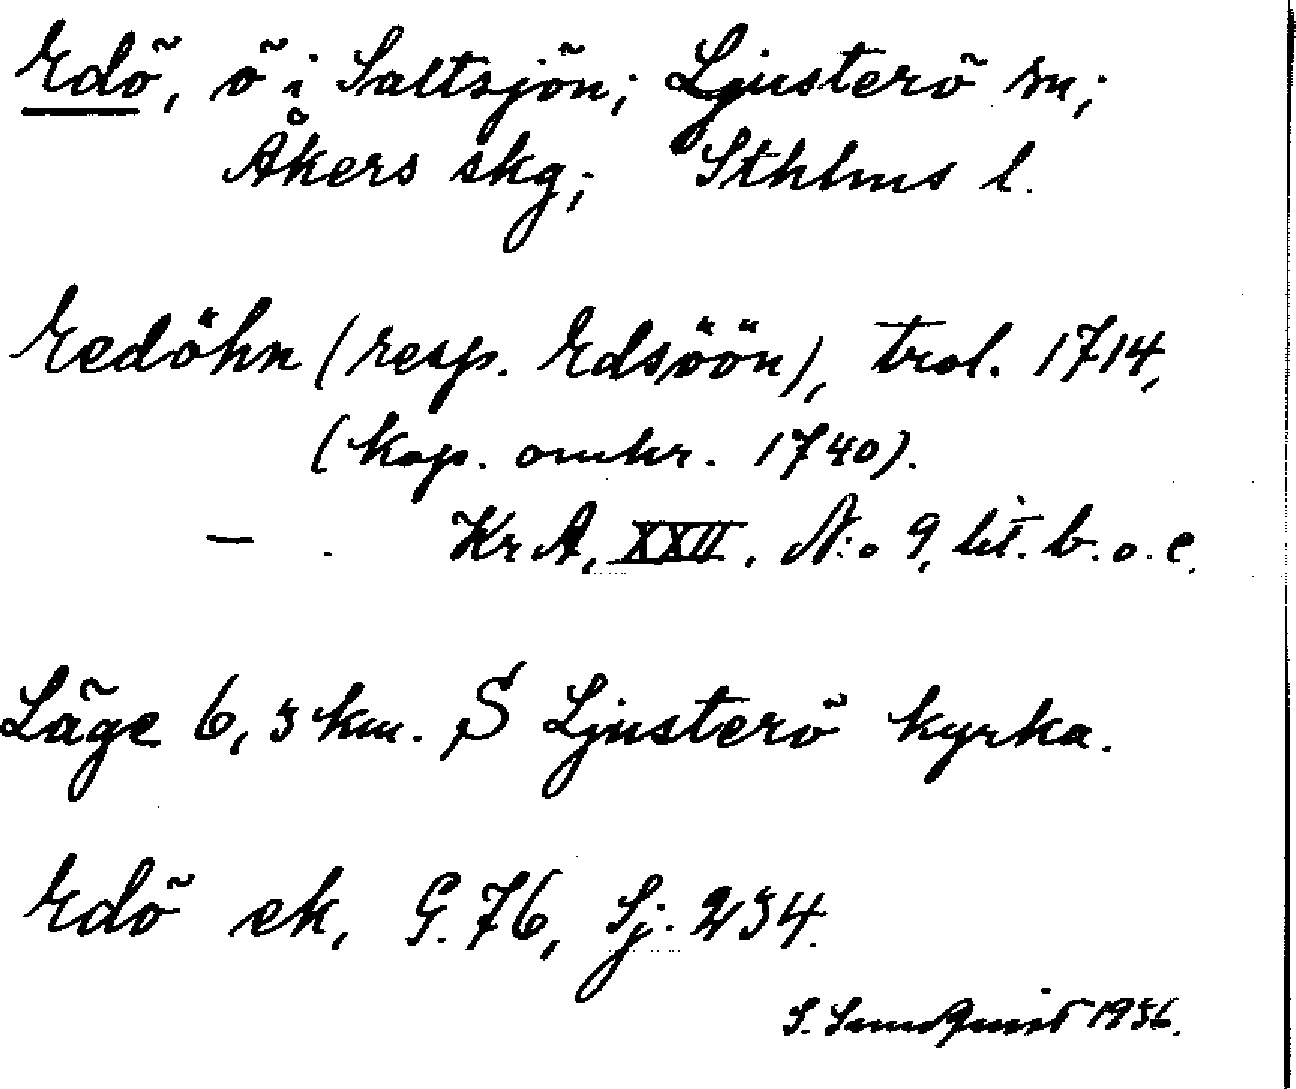 Edö, ö i Saltsjön; Ljusterö sn;
Åkers skg; Sthlms l.
Eedöhn (resp. Edsöön), trol. 1714,
(kop. omkr. 1740).
— . Kr A, XXII. N:o 9, lit. b. o. c.
Läge 6,5 km. S Ljusterö kyrka.
Edö ek, G. 76, Sj. 234.
S. Sundquist 1936.